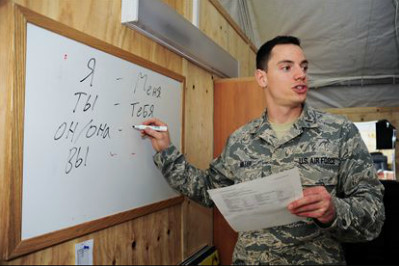 Я - Меня
ТЫ - Тебя
ОН/ОНА -
ВЫ - -
U.S. AIR FORCE